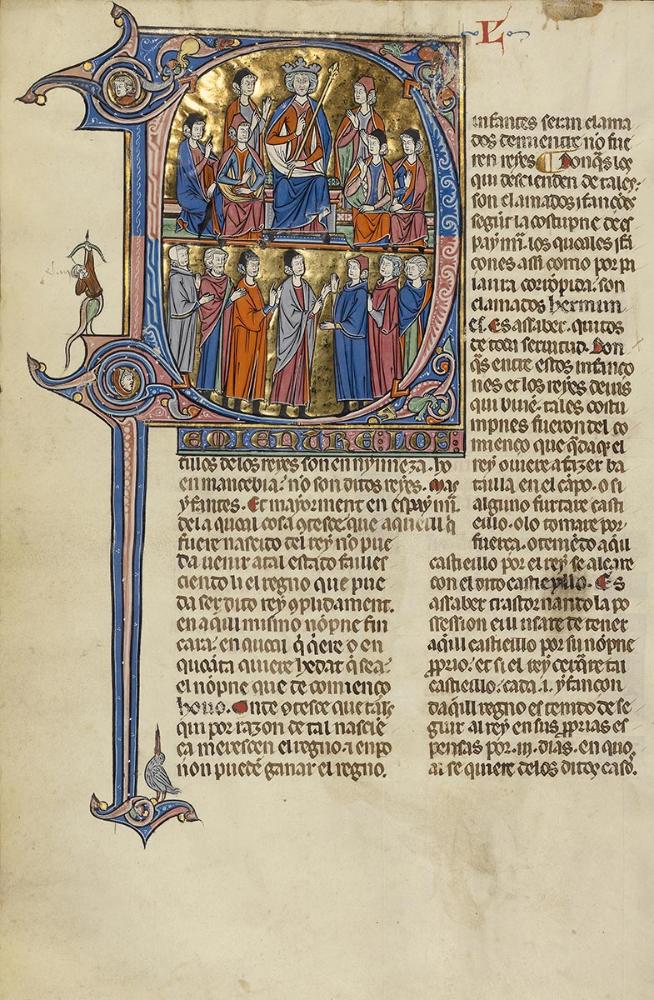 L
EMIENTRE LOS
fillos delos reyes son en nynneza. ho
en mancebia; no son ditos reyes. Mas
yfantes. Et mayorment en espaynna.
dela quoal cosa ꝯtesce. que aqueill q̅
fuere nascito del rey no pue
da uenir atal estado failles
ciendo li el regno que pue
da ser dito rey ꝯplidament.
en aquel mismo nōpne fin
cara. en quoal q̅ q̅ere o en
quoāta quiere hedat q̅ sea.
el nōpne que de comienço
houo. Onde ꝯtesce que tales
qui por razon de tal nasciē
ça merescen el regno. ⁊ enpo
non puedē ganar el regno.
infantes seran clama
dos demientre no fue
ren reyes. Donq̅s los
qui descienden de tales.
son clamados ifançones
segūt la costupne de es
paynna. los quoales ifā
çones assi como por pa
laura corrōpida. son
clamados hermun
es. Es assaber. quitos
de toda seruitud. Don
q̅s entre estos infanço
nes et los reyes deius
qui biuē. tales costu
mpnes fueron del co
mienço que q̅da q̅ el
rey ouiere a fazer ba
tailla en el cāpo. o si
alguno furtare casti
eillo. o lo tomare por
fuerça. o temēdo aq̅ll
castieillo por el rey se alçare
con el dito castieyllo. Es
assaber trastornando la po
ssession et usare de tener
aq̅ill castieillo por su nōpne
ꝓprio. et si el rey cerq̅re tal
castieillo. cada .i. yfançon
daq̅ill regno es temido de se
guir al rey en sus ꝓprias es
pensas por .iij. dias. en quo
al se quiere delos ditos casos.